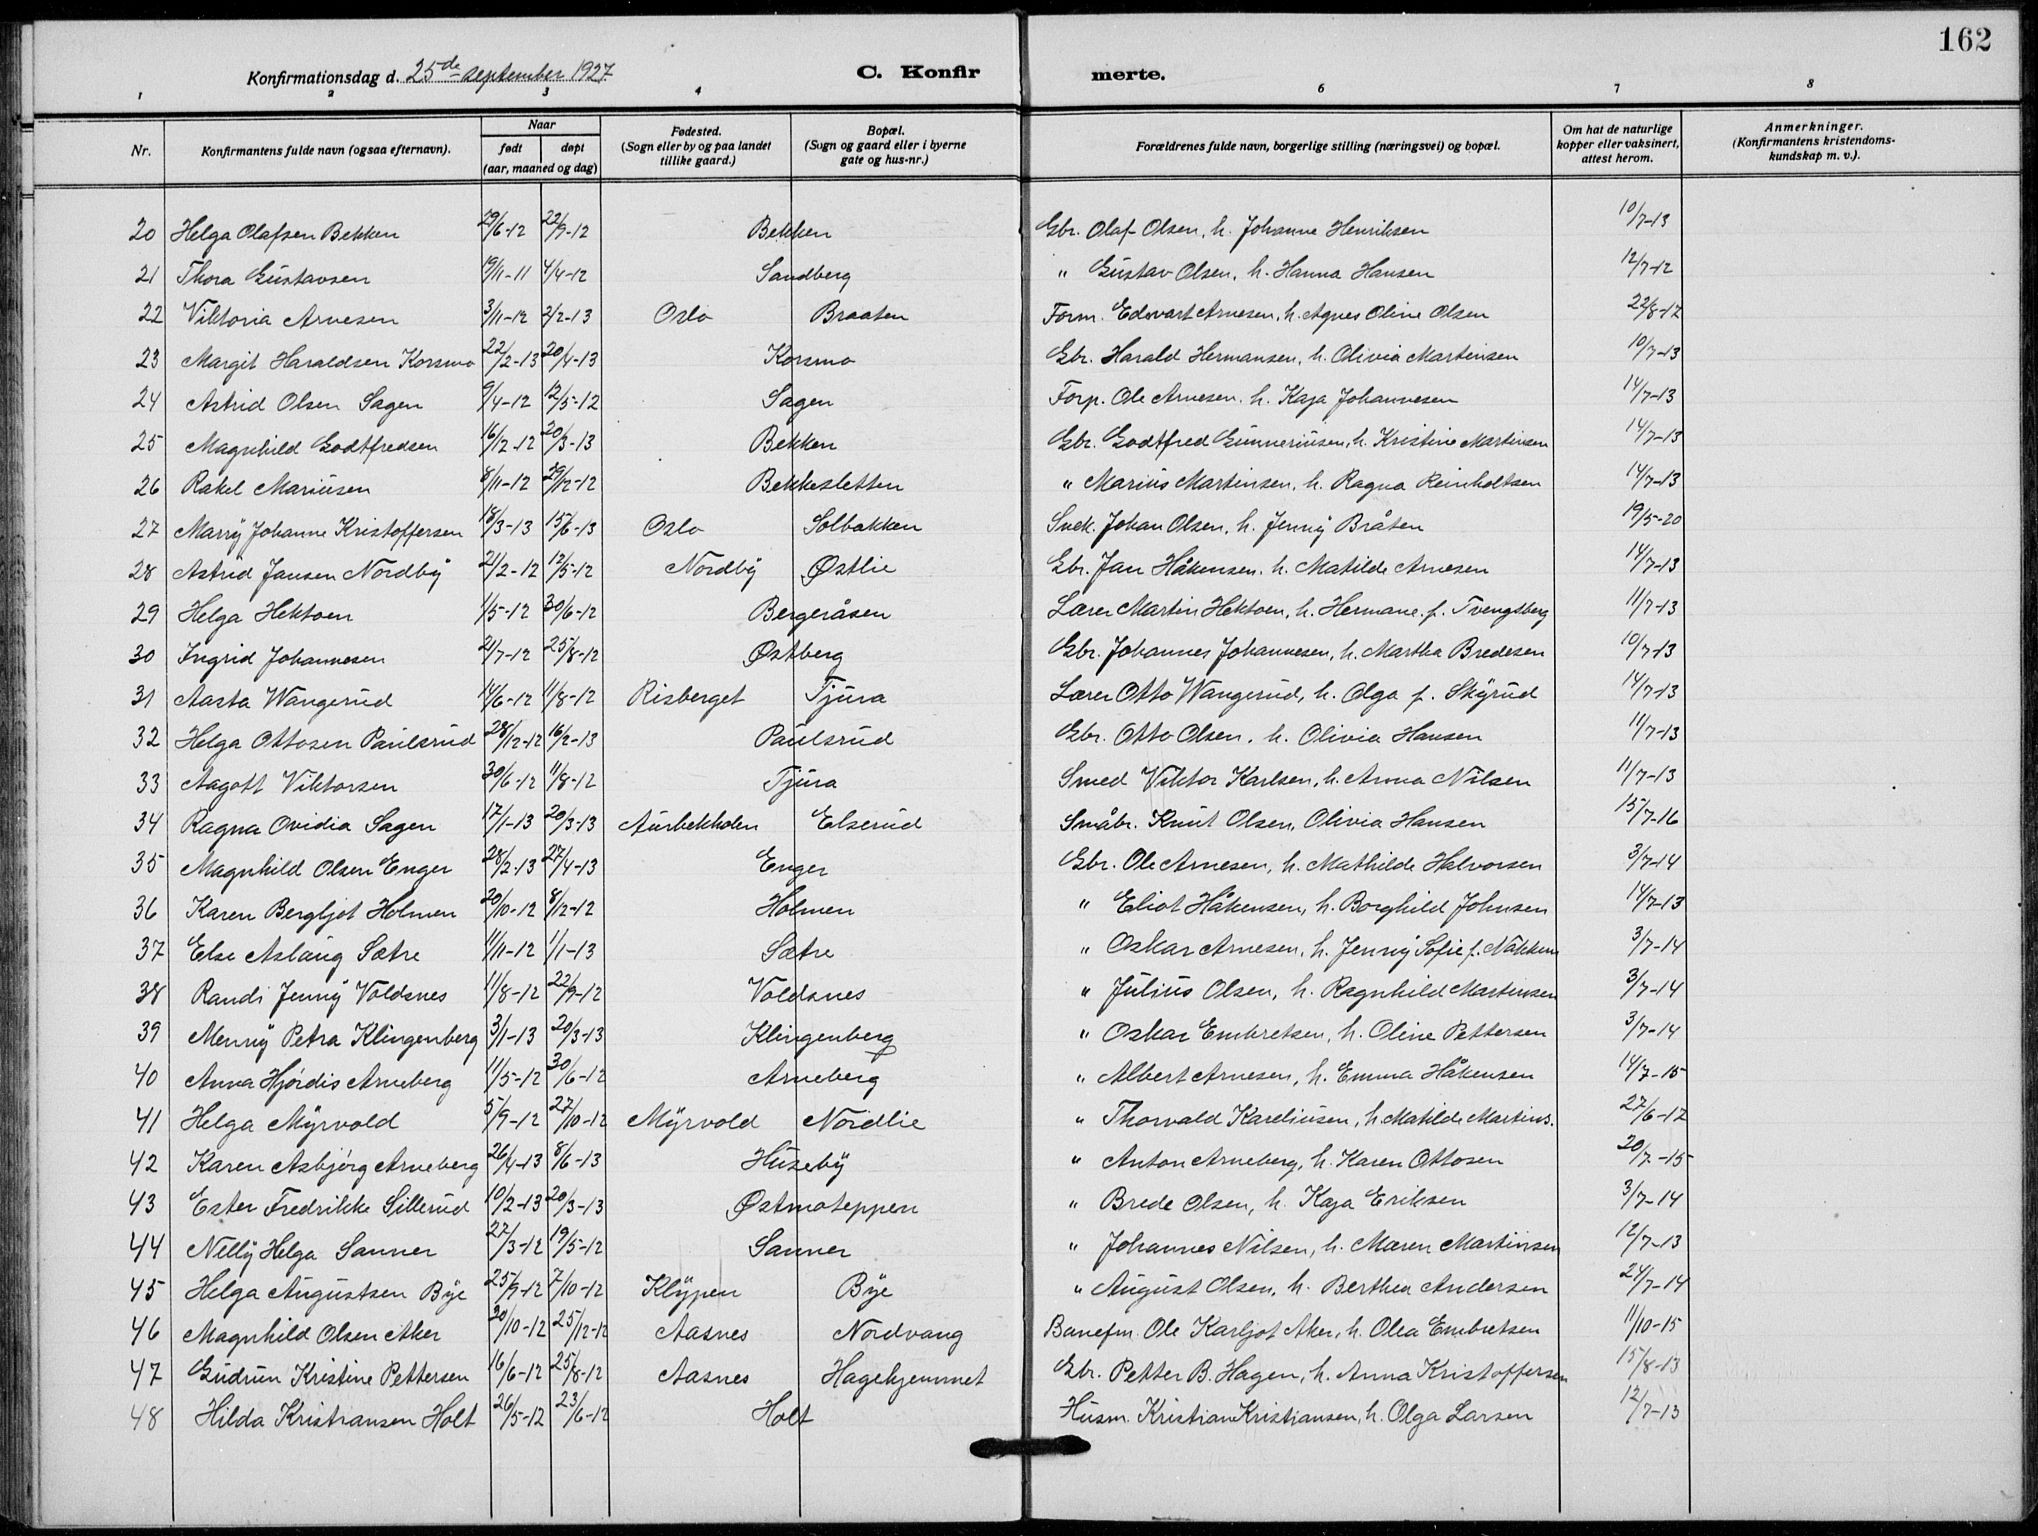 162
Konfirmationsdag d. 25de september 1927. C. Konfirmerte.
1 2 3 4 6 7 8
Nr. Konfirmantens fulde navn (ogsaa efternavn). Naar født døpt (aar, maaned og dag) Fødested. (Sogn eller by og paa landet tillike gaard.) Bopæl. (Sogn og gaard eller i byerne gate og hus-nr.) Forældrenes fulde navn, borgerlige stilling (næringsvei) og bopæl. Om hat de naturlige kopper eller vaksinert, attest herom. Anmerkninger. (Konfirmantens kristendomskundskap m. v.).
20 Helga Olafsen Bekken 29/6-12 22/9-12 Bekken Gbr. Olaf Olsen, h. Johanne Henriksen 10/7-13
21 Thora Gustavsen 19/11-11 4/4-12 Sandberg " Gustav Olsen, h. Hanna Hansen 12/7-12
22 Viktoria Arnesen 3/11-12 2/2-13 Oslo Braaten Form. Edvart Arnesen, h. Agnes Oline Olsen 22/8-17
23 Margit Haraldsen Korsmo 22/2-13 20/4-13 Korsmo Gbr. Harald Hermansen, h. Olivia Martinsen 10/7-13
24 Astrid Olsen Sagen 9/4-12 12/5-12 Sagen Forp. Ole Arnesen. h. Kaja Johannesen 14/7-13
25 Magnhild Godtfredsen 16/12-12 20/3-13 Bekken Gbr. Godtfred Gunneriusen, h. Kristine Martinsen 14/7-13
26 Rakel Mariusen 8/11-12 29/12-12 Bekkesletten " Marius Martinsen, h. Ragna Reinholtsen 14/7-13
27 Marry Johanne Kristoffersen 18/3-13 15/6-13 Oslo Solbakken Snek. Johan Olsen, h. Jenny Bråten 19/5-20
28 Astrid Jansen Nordby 21/2-12 12/5-12 Nordby Østlie Gbr. Jan Håkensen, h. Matilde Arnesen 14/7-13
29 Helga Hektoen 1/5-12 30/6-12 Bergeråsen Lærer Martin Hektoen, h. Hermane f. Tvengsberg 11/7-13
30 Ingrid Johannesen 21/7-12 25/8-12 Østberg Gbr. Johannes Johannesen, h. Martha Bredesen 10/7-13
31 Aasta Wangerud 14/6-12 11/8-12 Risberget Tjura Lærer Otto Wangerud, h. Olga f. Skyrud 14/7-13
32 Helga Ottosen Paulsrud 28/12-12 16/2-13 Paulsrud Gbr. Otto Olsen, h. Olivia Hansen 11/7-13
33 Aagott Viktorsen 30/6-12 11/8-12 Tjura Smed Viktor Karlsen, h. Anna Nilsen 11/7-13
34 Ragna Ovidia Sagen 17/1-13 20/3-13 Aurbekholen Elserud Småbr. Knut Olsen, Olivia Hansen 15/7-16
35 Magnhild Olsen Enger 28/2-13 27/4-13 Enger Gbr. Ole Arnesen, h. Mathilde Halvorsen 3/7-14
36 Karen Bergljot Holmen 20/10-12 8/12-12 Holmen " Eliot Håkensen, h. Borghild Johnsen 14/7-13
37 Else Aslaug Sætre 11/11-12 1/1-13 Sætre " Oskar Arnesen, h. Jenny Sofie f. Nakken 3/7-14
38 Randi Jenny Voldsnes 11/8-12 22/9-12 Voldsnes " Julius Olsen, h. Ragnhild Martinsen 3/7-14
39 Menny Petra Klingenberg 3/1-13 20/3-13 Klingenberg " Oskar Embretsen, h. Oline Pettersen 3/7-14
40 Anna Hjørdis Arneberg 11/5-12 30/6-12 Arneberg " Albert Arnesen, h. Emma Håkensen 14/7-15
41 Helga Myrvold 5/9-12 27/10-12 Myrvold Nordlie " Thorvald Kareliusen, h. Matilde Martins. 27/6-17
42 Karen Asbjørg Arneberg 26/4-13 8/6-13 Huseby " Anton Arneberg, h. Karen Ottosen 20/7-15
43 Ester Fredrikke Sillerud 10/2-13 20/3-13 Østmoteppen " Brede Olsen, h. Kaja Eriksen 3/7-14
44 Nelly Helga Sanner 27/3-12 19/5-12 Sanner " Johannes Nilsen, h. Maren Martinsen 12/7-13
45 Helga Augustsen Bye 25/9-12 7/10-12 Klypen Bye " August Olsen, h. Berthea Andersen 24/7-14
46 Magnhild Olsen Aker 20/10-12 25/12-12 Aasnes Nordvang Banefm. Ole Karljot Aker, h. Olea Embretsen 11/10-15
47 Gudrun Kristine Pettersen 16/6-12 25/8-12 Aasnes Hagehjemmet Gbr. Petter B. Hagen, h. Anna Kristoffersen 15/8-13
48 Hilda Kristiansen Holt 26/5-12 23/6-12 Holt Husm. Kristian Kristiansen, h. Olga Larsen 12/7-13